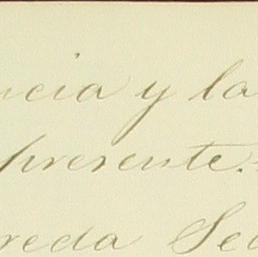 ncia y la
presente.
reda Se